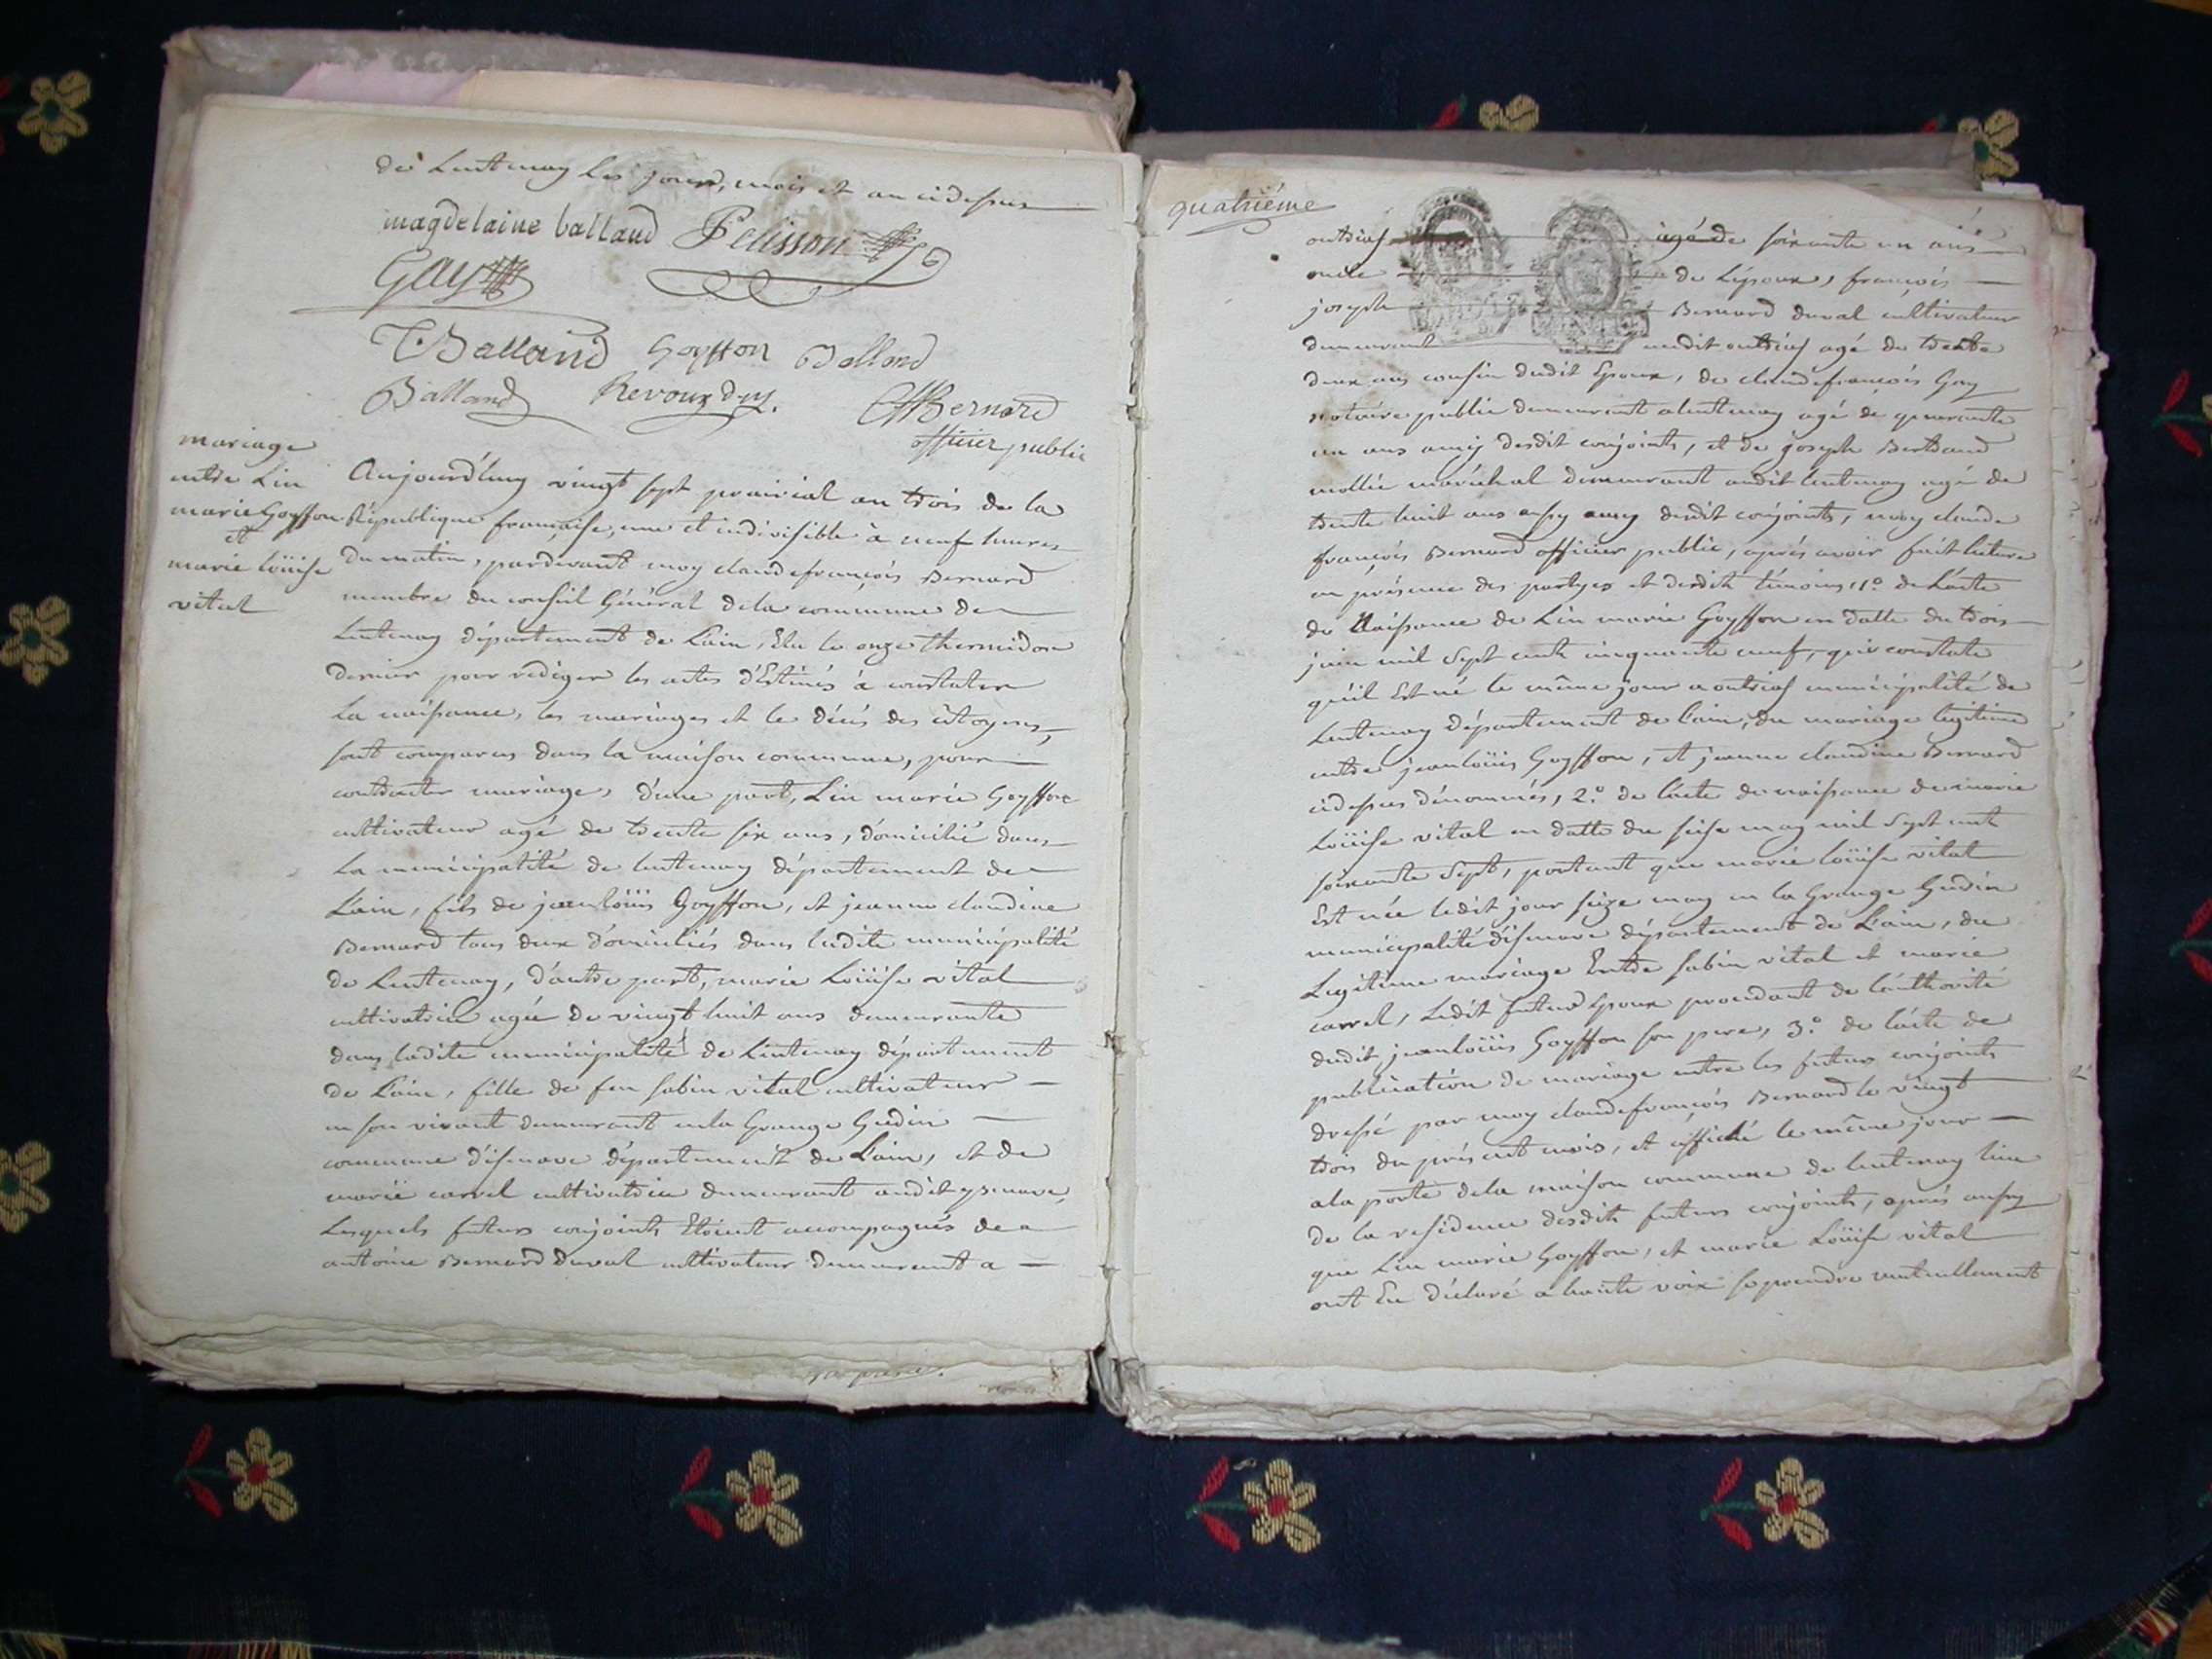 de Lentenay les jour, mois et an cidessus
magdelaine balland Pelisson
Gay
Balland Goyffon Balland
Balland Revoux d m. CfBernard
officier public
mariage
entre Lin
marie Goyffon
et
marie loüise
vital
Aujourd'huy vingt sept prairial an trois de la
République françaisse, une et indivisible à neuf heures
du matin, pardevant moy claudefrançois Bernard
membre du conseil Général dela commune de
Lentenay département de Lain, Elu le onze thermidor
dernier pour rediger les actes d'Estinés à constater
La naissance, les mariages et le décés des citoyens,
sont comparus dans la maison commune, pour
contracter mariage, d'une part, Lin marie Goyffon
cultivateur agé de trente six ans, domicilié dans
La municipalité de lentenay département de
L'ain, fils de jeanloüis Goyffon, et jeanne claudine
Bernard tous deux domiciliés dans ladite municipalité
de Lentenay, d'autre part, marie Loüise vital
cultivatrice agée de vingt huit ans demeurante
dans ladite municipalité de Lentenay département
de L'ain, fille de feu sabin vital cultivateur
en son vivant demeurant enla Grange Guedin
commune d'isernore département de Lain, et de
marie carrel cultivatrice demeurant audit ysernore,
Lesquels futurs conjoints Etoient accompagnés de
antoine Bernard duval cultivateur demeurant a
quatriéme
outriaf agé de soixante un ans
oncle de Lépoux, françois
joseph Bernard duval cultivateur
demeurant audit outriaf agé de trente
deux ans cousin dudit Epoux, de claudefrancois Gay
notaire public demeurant alentenay agé de quarante
un ans amy desdit conjoints, et de joseph Bertrand
mollie maréchal demeurant audit lentenay agé de
trente huit ans aussy amy desdit conjoints, moy claude
françois Bernard officier public, aprés avoir fait lecture
en présence des partyes et desdit témoins, 1.º de L'acte
de Naissance de Lin marie Goyffon en datte du trois
juin mil sept cent cinquante neuf, qui constate
qu'il Est né le même jour a outriaf municipalité de
Lentenay département de lain, du mariage legitime
entre jeanloüis Goyffon, et jeanne claudine Bernard
cidessus dénommés, 2.º de lacte de naissance de marie
Loüise vital en datte du seise may mil sept cent
soixante sept, portant que marie loüise vital
Est née ledit jour seize may en la Grange Guedin
municipalité d'isernore département de L'ain, du
Legitime mariage Entre sabin vital et marie
carrel, Ledit futur Epoux procedant de lauthorité
dudit jeanloüis Goyffon son pere, 3.º de lácte de
publication de mariage entre les futurs conjoints
dressé par moy claudefrançois Bernard le vingt
trois du présent mois, et affiché le même jour
ala porte dela maison commune de lentenay lieu
de la residence desdits futurs conjoints, aprés aussy
que Lin marie Goyffon, et marie Loüise vital
ont Eu déclaré a haute voix se prendre mutuellement